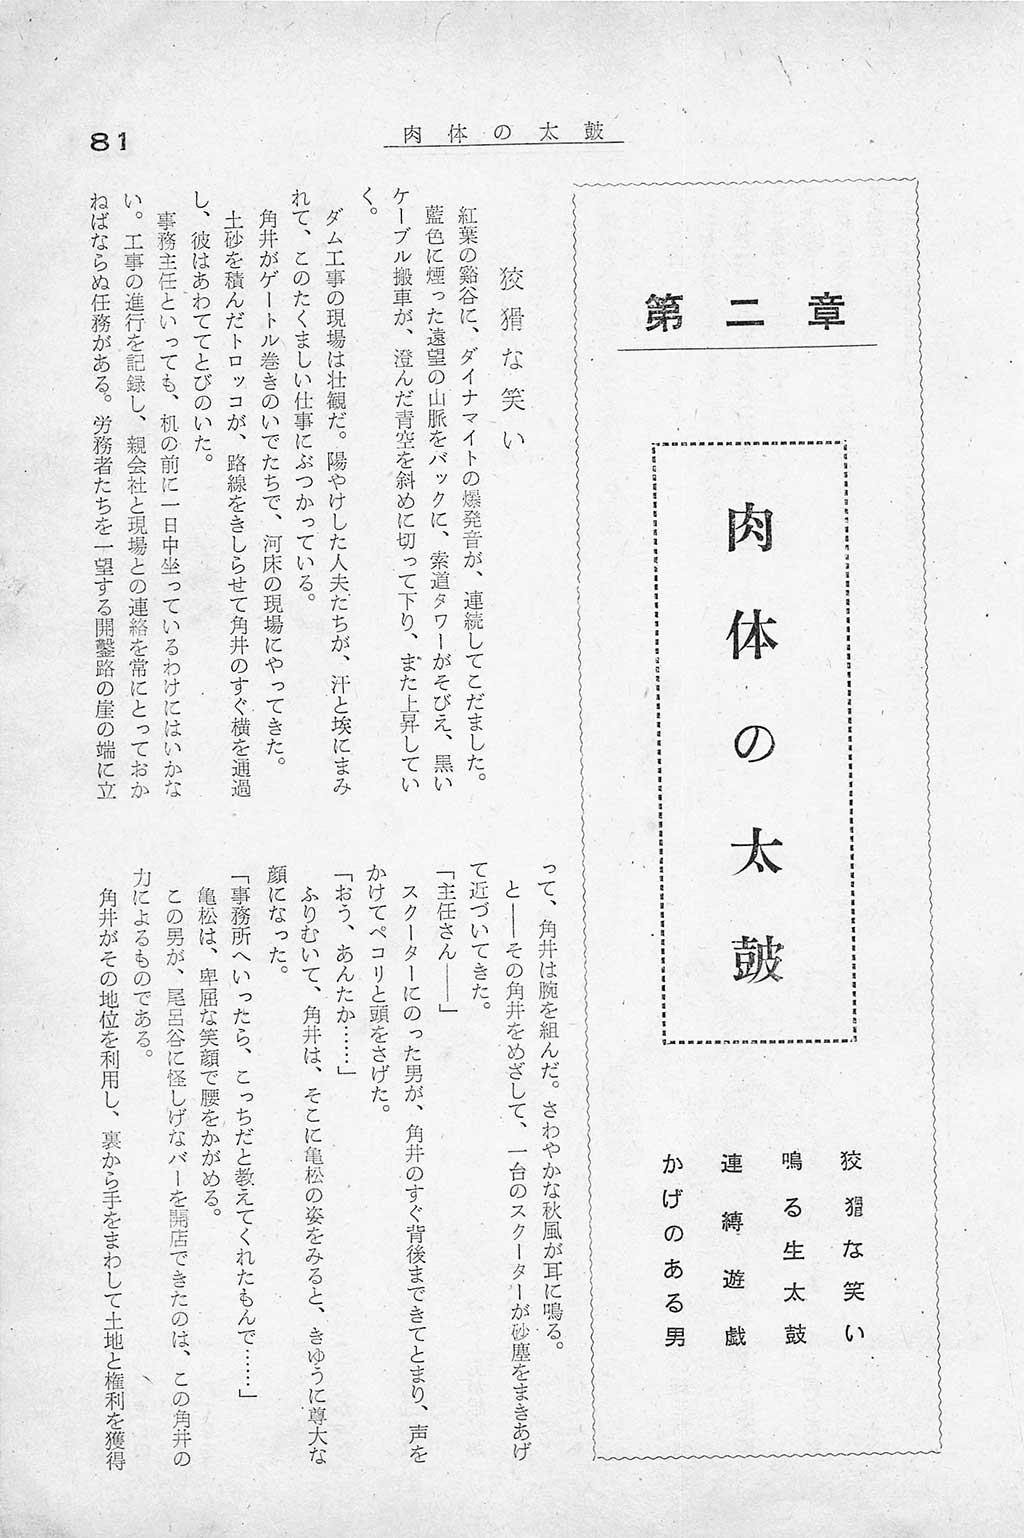 肉体の太鼓
81
第二章
肉体の太鼓
狡猾な笑い
鳴る生太鼓
連縛遊戯
かげのある男
狡猾な笑い
紅葉の谿谷に、ダイナマイトの爆発音が、連続してこだました。
藍色に煙った遠望の山脈をバックに、索道タワーがそびえ、黒い
ケーブル搬車が、澄んだ青空を斜めに切って下り、また上昇してい
く。
ダム工事の現場は壮観だ。陽やけした人夫たちが、汗と埃にまみ
れて、このたくましい仕事にぶつかっている。
角井がゲートル巻きのいでたちで、河床の現場にやってきた。
土砂を積んだトロッコが、路線をきしらせて角井のすぐ横を通過
し、彼はあわててとびのいた。
事務主任といっても、机の前に一日中坐っているわけにはいかな
い。工事の進行を記録し、親会社と現場との連絡を常にとっておか
ねばならぬ任務がある。労務者たちを一望する開鑿路の崖の端に立
って、角井は腕を組んだ。さわやかな秋風が耳に鳴る。
と――その角井をめざして、一台のスクーターが砂塵をまきあげ
て近づいてきた。
「主任さん――」
スクーターにのった男が、角井のすぐ背後まできてとまり、声を
かけてペコリと頭をさげた。
「おう、あんたか……」
ふりむいて、角井は、そこに亀松の姿をみると、きゆうに尊大な
顔になった。
「事務所へいったら、こっちだと教えてくれたもんで……」
亀松は、卑屈な笑顔で腰をかがめる。
この男が、尾呂谷に怪しげなバーを開店できたのは、この角井の
力によるものである。
角井がその地位を利用し、裏から手をまわして土地と権利を獲得